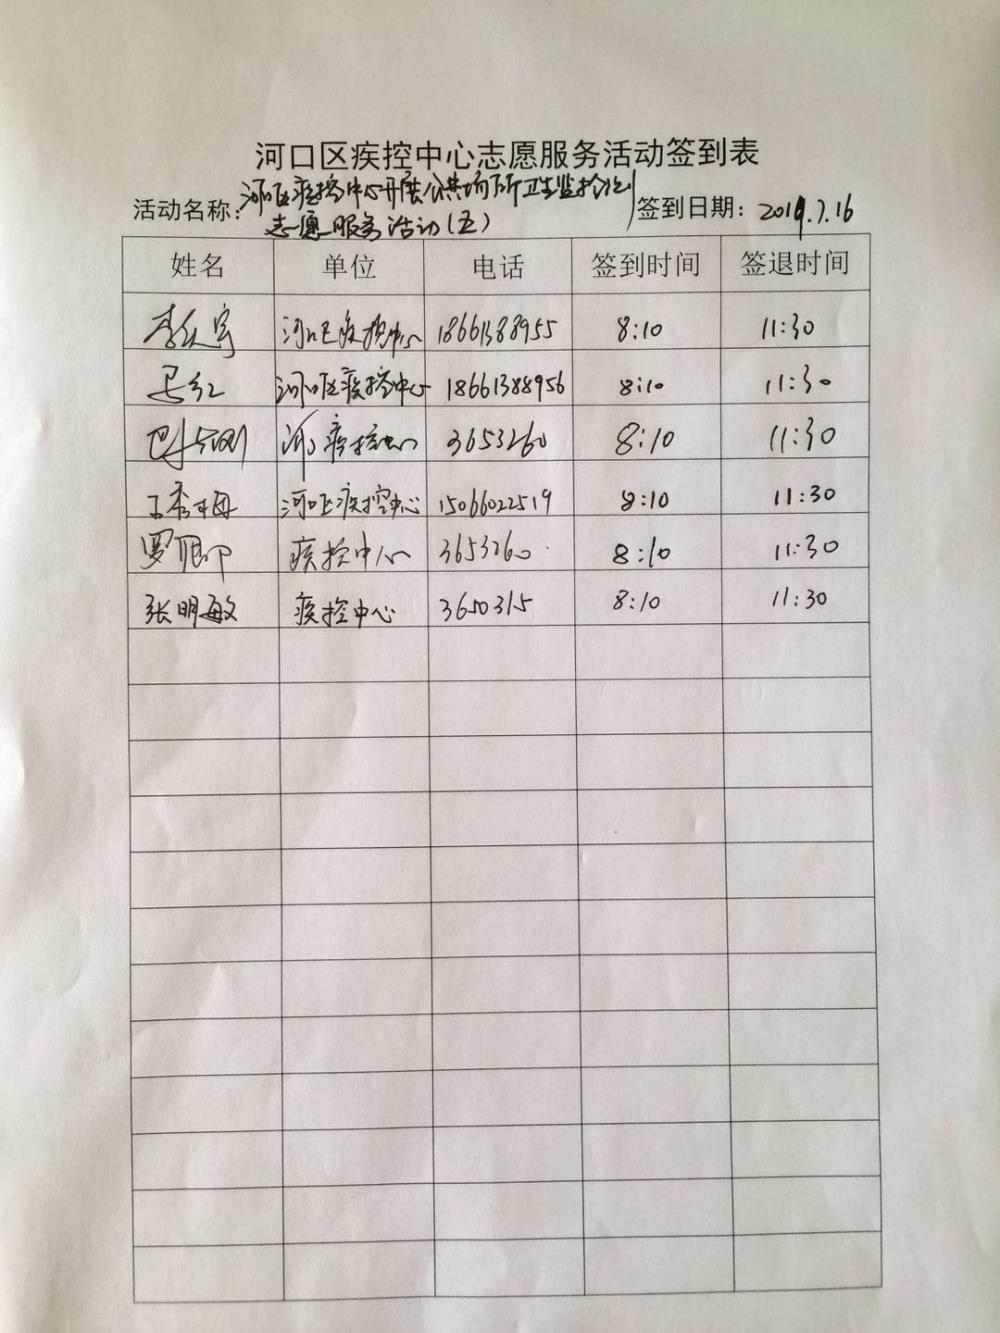 河口区疾控中心志愿服务活动签到表
活动名称：河口区疾控中心开展公共场所卫生监 签到日期：2019.7.16
志愿服务活动(五)
姓名 单位 电话 签到时间 签退时间
李 河口区疾控中心 18661388955 8:10 11:30
马红 河口区疾控中心 18661388956 8:10 11:30
河口疾控中心 3653260 8:10 11:30
王秀梅 河口区疾控中心 15066022519 8:10 11:30
罗 疾控中心 3653260 8:10 11:30
张明敏 疾控中心 3650315 8:10 11:30